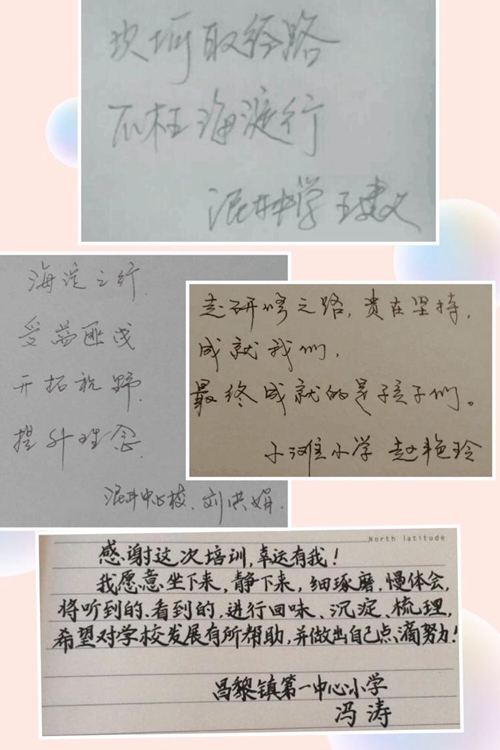 坎坷取经路
不枉海淀行
泥井中学 王建义
海淀之行
受益匪浅
开拓视野
提升理念
泥井中心校、刘洪娟
走研修之路,贵在坚持,
成就我们,
最终成就的是孩子们。
小滩小学 赵艳玲
North latitude
感谢这次培训,幸运有我!
我愿意坐下来,静下来,细琢磨,慢体会,
将听到的、看到的,进行回味、沉淀、梳理,
希望对学校发展有所帮助,并做出自己点滴努力!
昌黎镇第一中心小学
冯涛